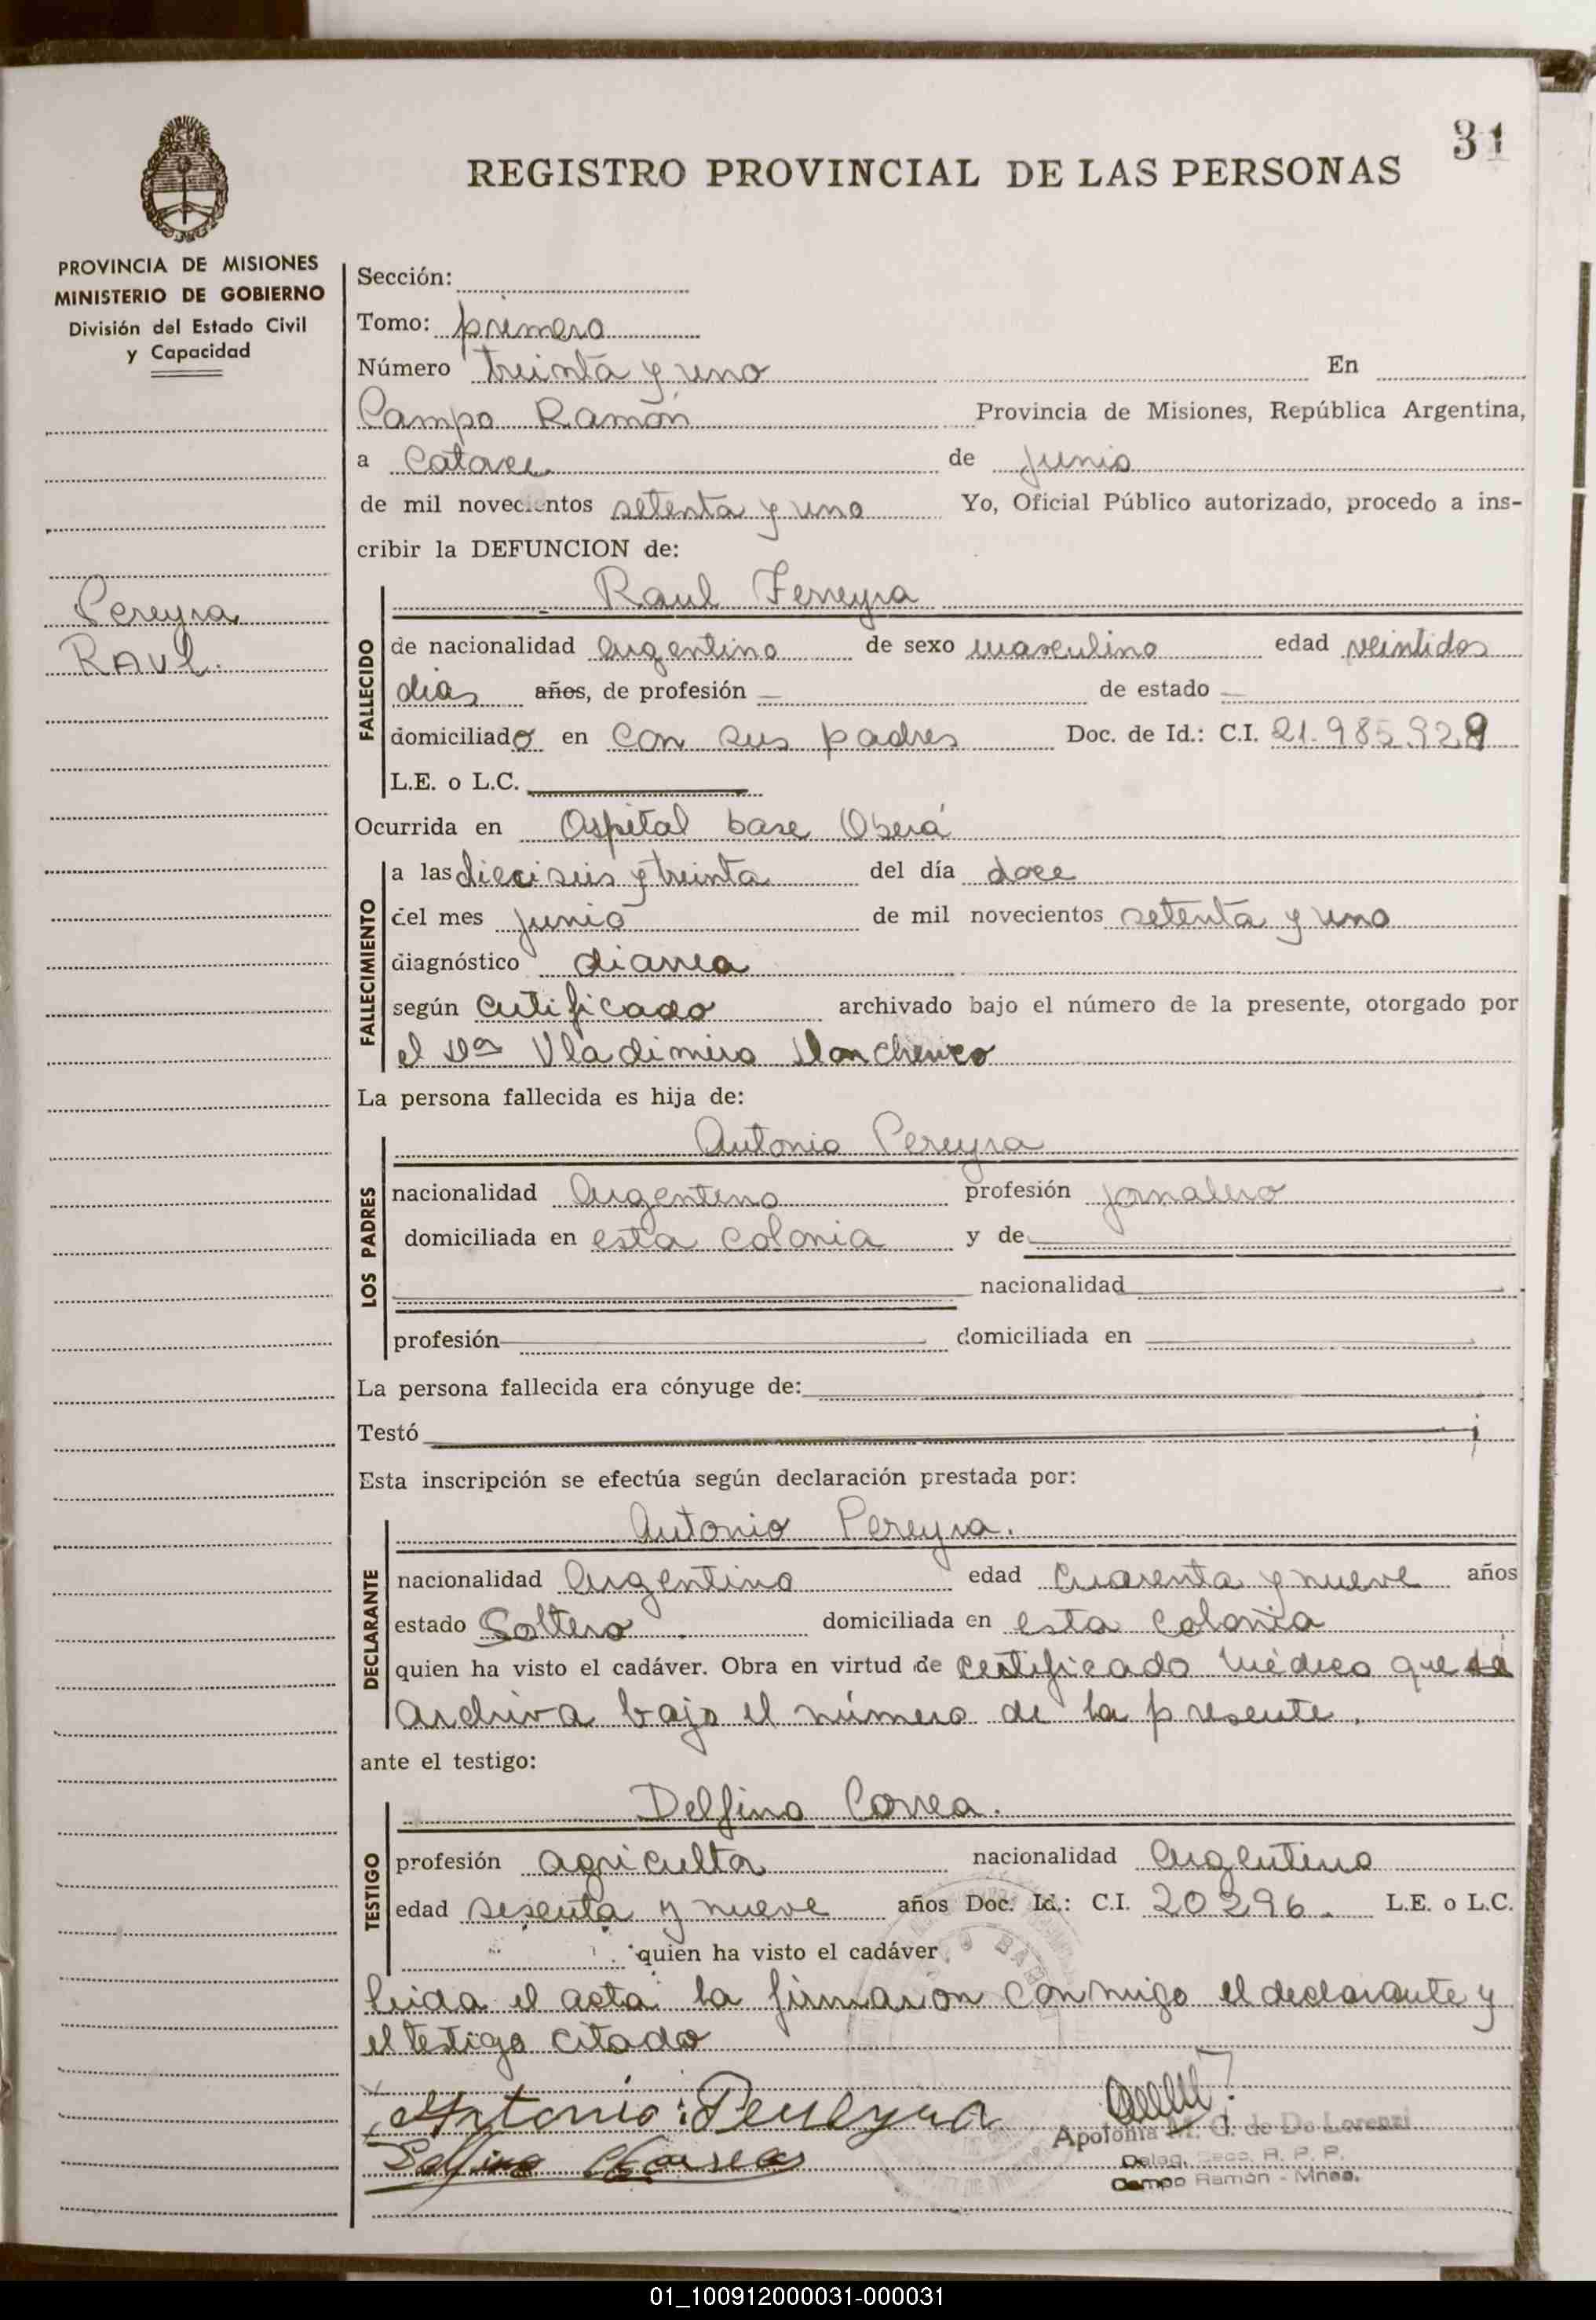 31
REGISTRO PROVINCIAL DE LAS PERSONAS
PROVINCIA DE MISIONES
MINISTERIO DE GOBIERNO
División del Estado Civil
y Capacidad
Pereyra
RAUL.
Sección:
Tomo: primero
Número treinta y uno En
Campo Ramón Provincia de Misiones, República Argentina,
a Catorce de Junio
de mil novecientos setenta y uno Yo, Oficial Público autorizado, procedo a ins-
cribir la DEFUNCION de:
Raul Ferreyra
FALLECIDO
de nacionalidad Argentino de sexo masculino edad veintidos
dias años, de profesión de estado
domiciliado en Con sus padres Doc. de Id.: C.I. 21.985.929
L.E. o L.C.
Ocurrida en Ospital base Oberá
FALLECIMIENTO
a las dieciseis y treinta del día doce
del mes junio de mil novecientos setenta y uno
diagnóstico diarrea
según certificado archivado bajo el número de la presente, otorgado por
el Vladimiro
La persona fallecida es hija de:
LOS PADRES
Antonio Pereyra
nacionalidad Argentino profesión jornalero
domiciliada en esta colonia y de
nacionalidad
profesión domiciliada en
La persona fallecida era cónyuge de:
Testó
Esta inscripción se efectúa según declaración prestada por:
DECLARANTE
Antonio Pereyra.
nacionalidad Argentino edad Cuarenta y nueve años
estado Soltero. domiciliada en esta colonia
quien ha visto el cadáver. Obra en virtud de Certificado Médico que se
archiva bajo el número de la presente.
ante el testigo:
TESTIGO
Delfino Correa.
profesión agricultor nacionalidad Argentino
edad sesenta y nueve años Doc. Id.: C.I. 20296. L.E. o L.C.
quien ha visto el cadáver
leida el acta la firmaron conmigo el declarante y
el testigo citado
Antonio Pereyra
Delfino Correa
Apolonia M. G. de De Lorenzi
Deleg. Secc. R. P. P.
Campo Ramón - Mnes.
01_100912000031-000031